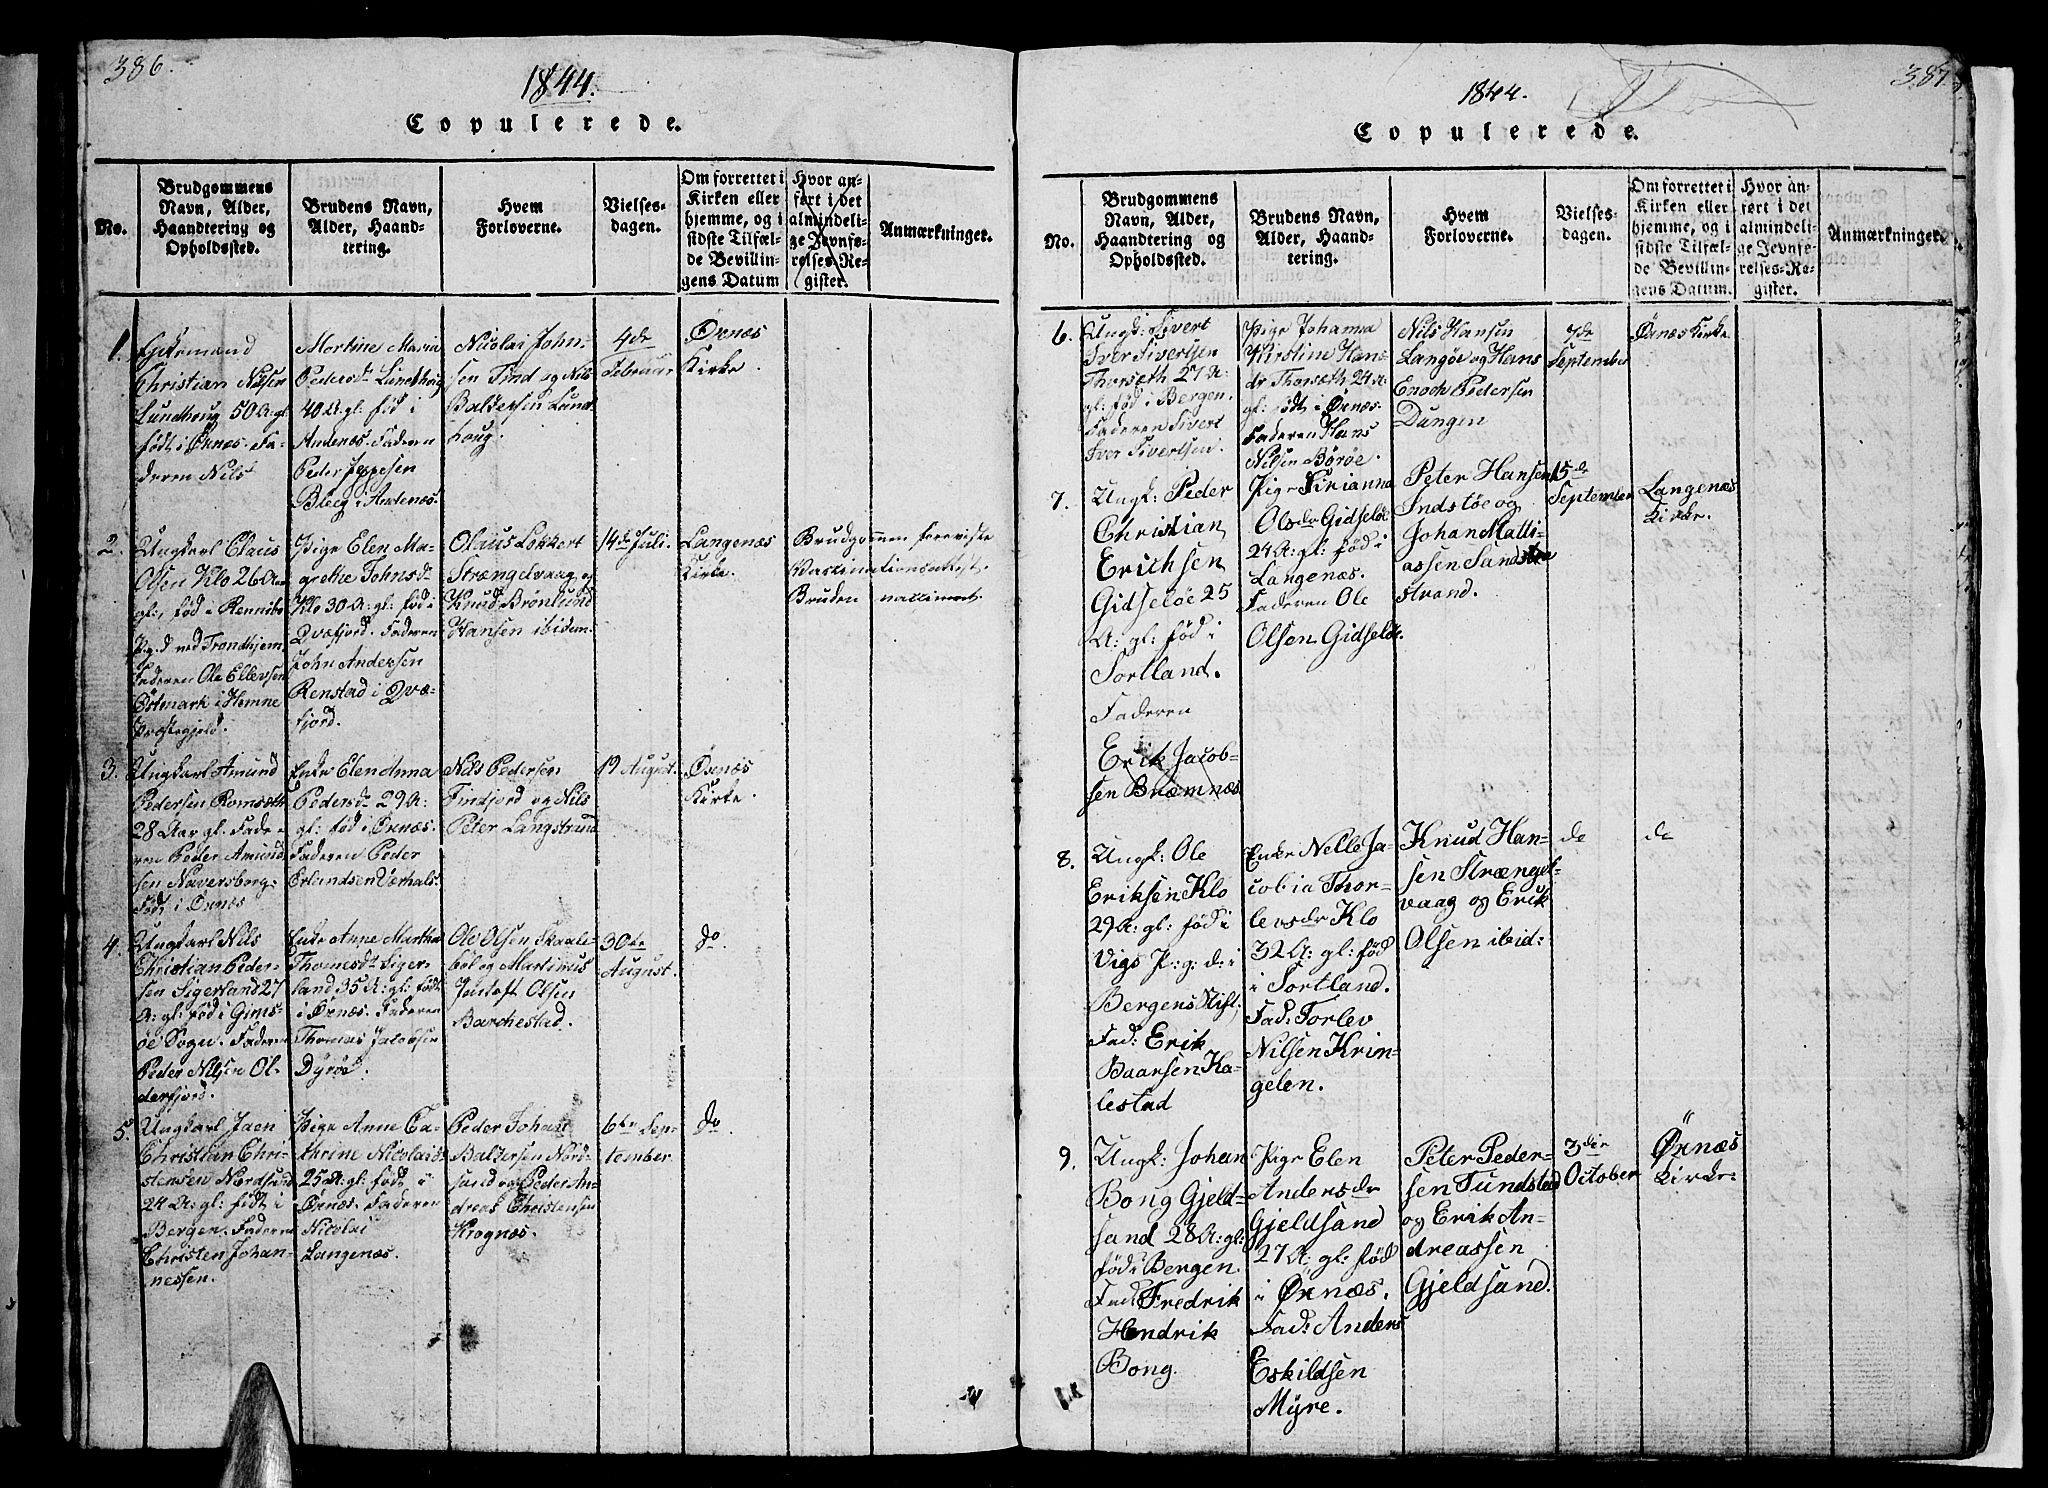 386.
1844.
Copulerede.
No.
Brudgommens
Navn, Alder,
Haandtering og
Opholdssted.
Brudens Navn,
Alder, Haand-
tering.
Hvem
Forloverne.
Vielses-
dagen.
Om forrettet i
Kirken eller
hjemme, og i
sidste Tilfæl-
de Bevillin-
gens Datum
Hvor an-
ført i det
almindeli-
ge Jevnfø-
relses-Re-
gister.
Anmærkninger.
1.
Enkemand
Christian Nilsen
Lundhoug 50 A: gl:
født i Ørnæs. Fa-
deren Nils
Martine Maria
Pedersdr Lundhoug
40 A: gl: fød i
Andenæs. Faderen
Peder Jeppesen
Bleeg i Andenæs.
Nicolai John-
sen Tind og Nils
Baltzersen Lund-
houg.
4de
Februar
Ørnæs
Kirke.
2.
Ungkarl Claus
Olsen Klo 26 Aar
gl:, fød i Rennebo
P.g.d ved Trondhjem
Faderen Ole Ellevsen
Østmark i Hemne
Præstegjeld.
Pige Elen Ma-
grethe Johnsdr
Klo 30 A: gl: fød i
Qvæfjord. Faderen
John Andersen
Renstad i Qvæ-
fjord.
Olaus Lokkert
Strængelvaag og
Knud Brønlund
Hansen ibidem.
14de Juli.
Langenæs
Kirke.
Brudgommen foreviste
Vaccinationsattest.
Bruden
3.
Ungkarl Amund
Pedersen Romsæth
28 Aar gl. Fade-
ren Peder Amund-
sen Naversberg.
Født i Ørnæs
Enke Elen Anna
Pedersdr 29 A:
gl: fød i Ørnæs.
Faderen Peder
Erlandsen Værhals.
Nils Pedersen
Findjord og Nils
Peter Langstrand
19 August.
Ørnæs
Kirke
4.
Ungkarl Nils
Christian Peder-
sen Sigerland 27
A: gl: fød i Gims-
øe Sogn. Faderen
Peder Nilsen Ol-
derfjord.
Enke Anne Martha
Thomesdr Siger-
land 35 A: gl: født
i Ørnæs. Faderen
Thomas Jacobsen
Dyrøe.
Ole Olsen Skaale-
bøl og Martinus
Justaft Olsen
Barchestad.
30te
August.
do.
5.
Ungkarl Jaen
Christian Chri-
stensen Nordsand
24 A: gl: født i
Bergen. Faderen
Christen Johan-
nessen.
Pige Anne Ca-
thrine Nicolaid:
25 A: gl: født i
Ørnæs. Faderen
Nicolai
Langenæs.
Peder Johan
Baltzersen Nord-
sand og Peder An-
dreas Christensen
Krognæs.
6te Sep-
tember
do.
387.
1844.
Copulerede.
No.
Brudgommens
Navn, Alder,
Haandtering og
Opholdssted.
Brudens Navn,
Alder, Haand-
tering.
Hvem
Forloverne.
Vielses-
dagen.
Om forrettet i
Kirken eller
hjemme, og i
sidste Tilfæl-
de Bevillin-
gens Datum.
Hvor an-
ført i det
almindeli-
ge Jevnfø-
relses-Re-
gister.
Anmærkninger.
6.
Ungk: Sivert
Iver Sivertsen
Thorsæth 27 A:
gl: fød i Bergen.
Faderen Sivert
Iver Sivertsen.
Pige Johanna
Kirstine Hans-
dr Thorsæth 24 A:
gl: født i Ørnæs.
Faderen Hans
Nilsen Børøe.
Nils Hansen
Langøe og Hans
Enoch Pedersen
Dungen
7de
September
Ørnæs Kirke
7.
Ungk: Peder
Christian
Erichsen
Gidseløe 25
A: gl: fød i
Sortland.
Faderen
Erik Jacob-
sen Bræmnæs
Pige Sirianna
Olsdr Gidseløe
24 A: gl: fød i
Langenæs.
Faderen Ole
Olsen Gidseløe.
Peter Hansen
Indstøe og
Johan Matti-
assen Sand
strand.
15de
September
Langenæs
Kirke.
8.
Ungk: Ole
Eriksen Klo
29 A: gl: fød i
Vigs P: g: d: i
Bergens Stift.
Fad: Erik
Baarsen Ka-
lestad
Enke Nelle Ja-
cobia Thor-
levsdr Klo
32 A: gl: fød
i Sortland.
Fad: Torlev
Nilsen Krin-
gelen.
Knud Han-
sen Strængel-
vaag og Erik
Olsen ibid:
do
do
9.
Ungk: Johan
Bong Gjeld-
sand 28 A: gl:
fød i Bergen.
Fad: Fredrik
Hendrik
Bong.
Pige Elen
Andersdr
Gjeldsand
27 A: gl: fød
i Ørnæs.
Fad: Anders
Eskildsen
Myre.
Peter Peder-
sen Tundstad
og Erik An-
dreassen
Gjeldsand.
3die
October
Ørnæs
Kirke.